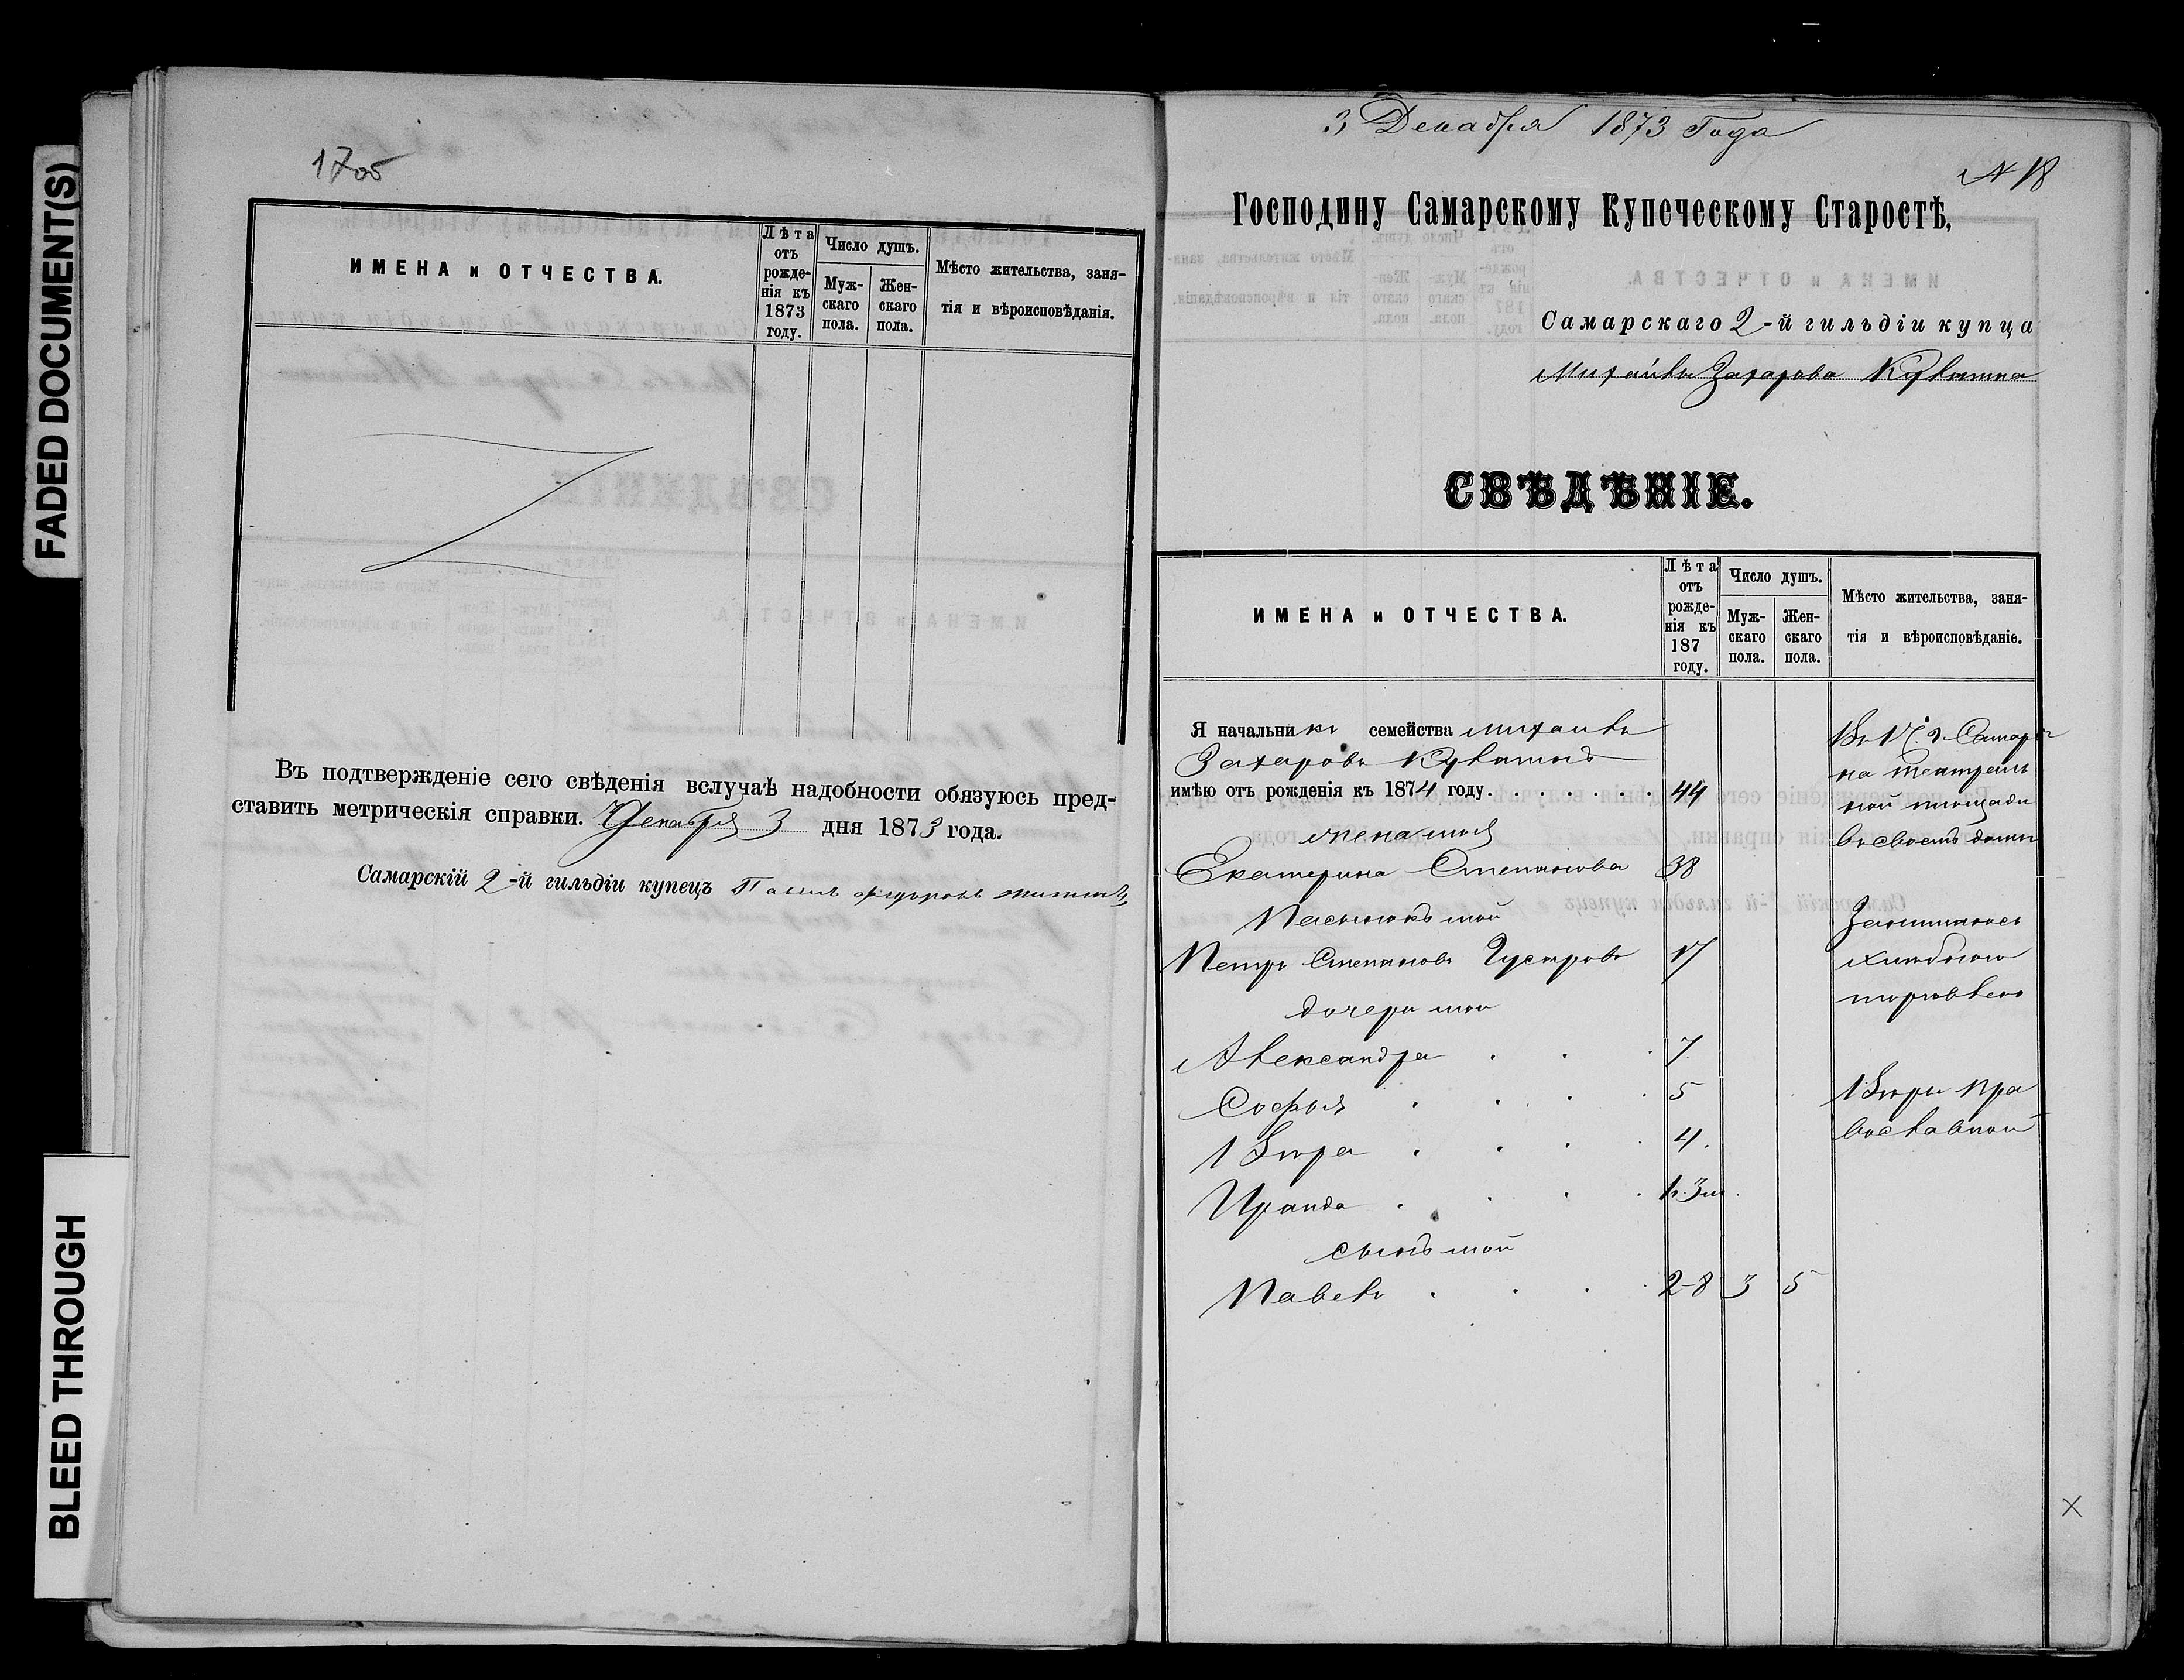 FADED DOCUMENT(S)
BLEED THROUGH
1705
ИМЕНА и ОТЧЕСТВА.
Лѣта отъ рожденія къ 1873 году.
Число душъ.
Мужскаго пола.
Женскаго пола.
Мѣсто жительства, занятія и вѣроисповѣданія.
Въ подтвержденіе сего свѣденія вслучаѣ надобности обязуюсь пред-
ставить метрическія справки. Декабря 3 дня 1873 года.
Самарскій 2-й гильдіи купецъ
3 Декабря 1873 Года
N 18
Господину Самарскому Купеческому Старостѣ,
Самарскаго 2-й гильдіи купца
Михаила Захарова
СВѢДѢНІЕ.
ИМЕНА и ОТЧЕСТВА.
Лѣта отъ рожденія къ 187 году.
Число душъ.
Мужскаго пола.
Женскаго пола.
Мѣсто жительства, занятія и вѣроисповѣданіе.
Я начальникъ семейства Михаилъ
Захаровъ
имѣю отъ рожденія къ 1874 году. . . . . . . 44
жена моя
Екатерина Степанова 38
Пасынокъ мой
Петръ Степановъ 17
дочери мои
Александра . . . 7
Софья . . . . 5
Вѣра . . . . 4.
Ираида . . . .
сынъ мой
Павелъ . . . . 2-8 3 5
Самары
на театраль
ной площади
въ своемъ домѣ
Занимаюсь
хлѣбною
торговлею
Вѣры пра
вославной
X